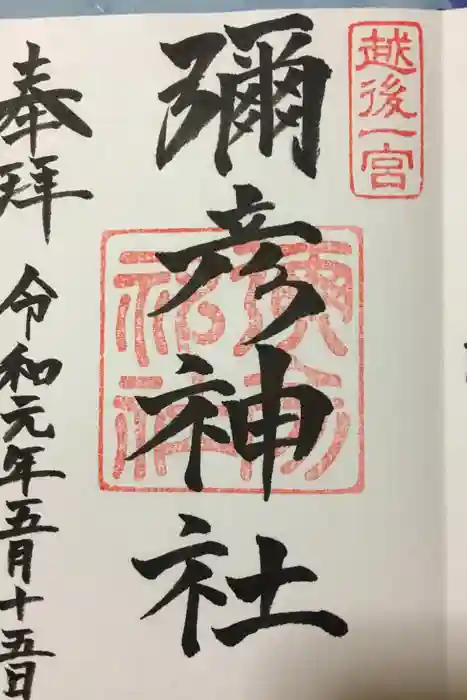 越後一宮
彌彦神社
奉拜
令和元年五月十五日